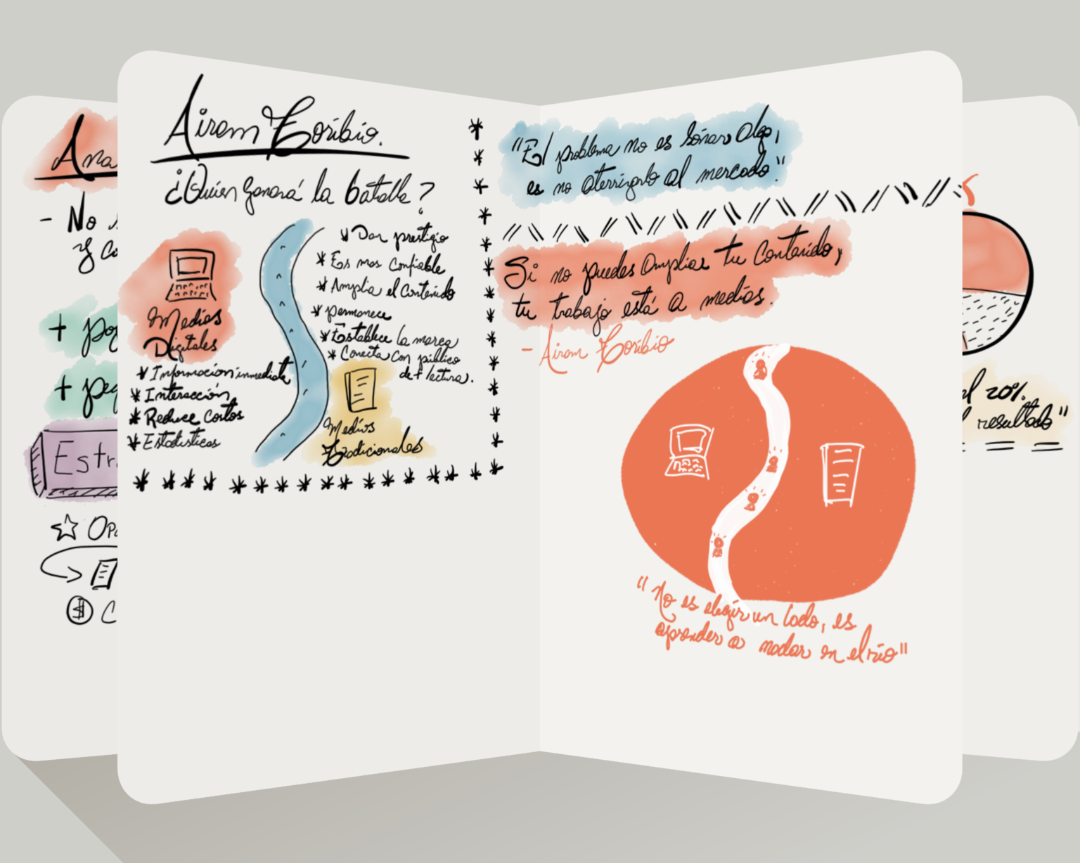 Airam Toribio.
¿Quien ganará la batalla?
Medios
Digitales
* Informacion inmediata
* Interacción
* Reduce Costos
* Estadisticas
* Dar prestigio
* Es mas Confiable
* Amplia el Contenido
* permanece
* Establece la marca
* Conecta con público
de + lectura.
Medios
tradicionales
"El problema no es soñar algo,
es no aterrizarlo al mercado."
Si no puedes Ampliar tu Contenido,
tu trabajo está a medias.
- Airam Toribio
"No es elegir un lado, es
aprender a nadar en el río"
Ana
- No
y co
+ po
+ peq
Estr
Opo
$ C
el 20%
resultado"